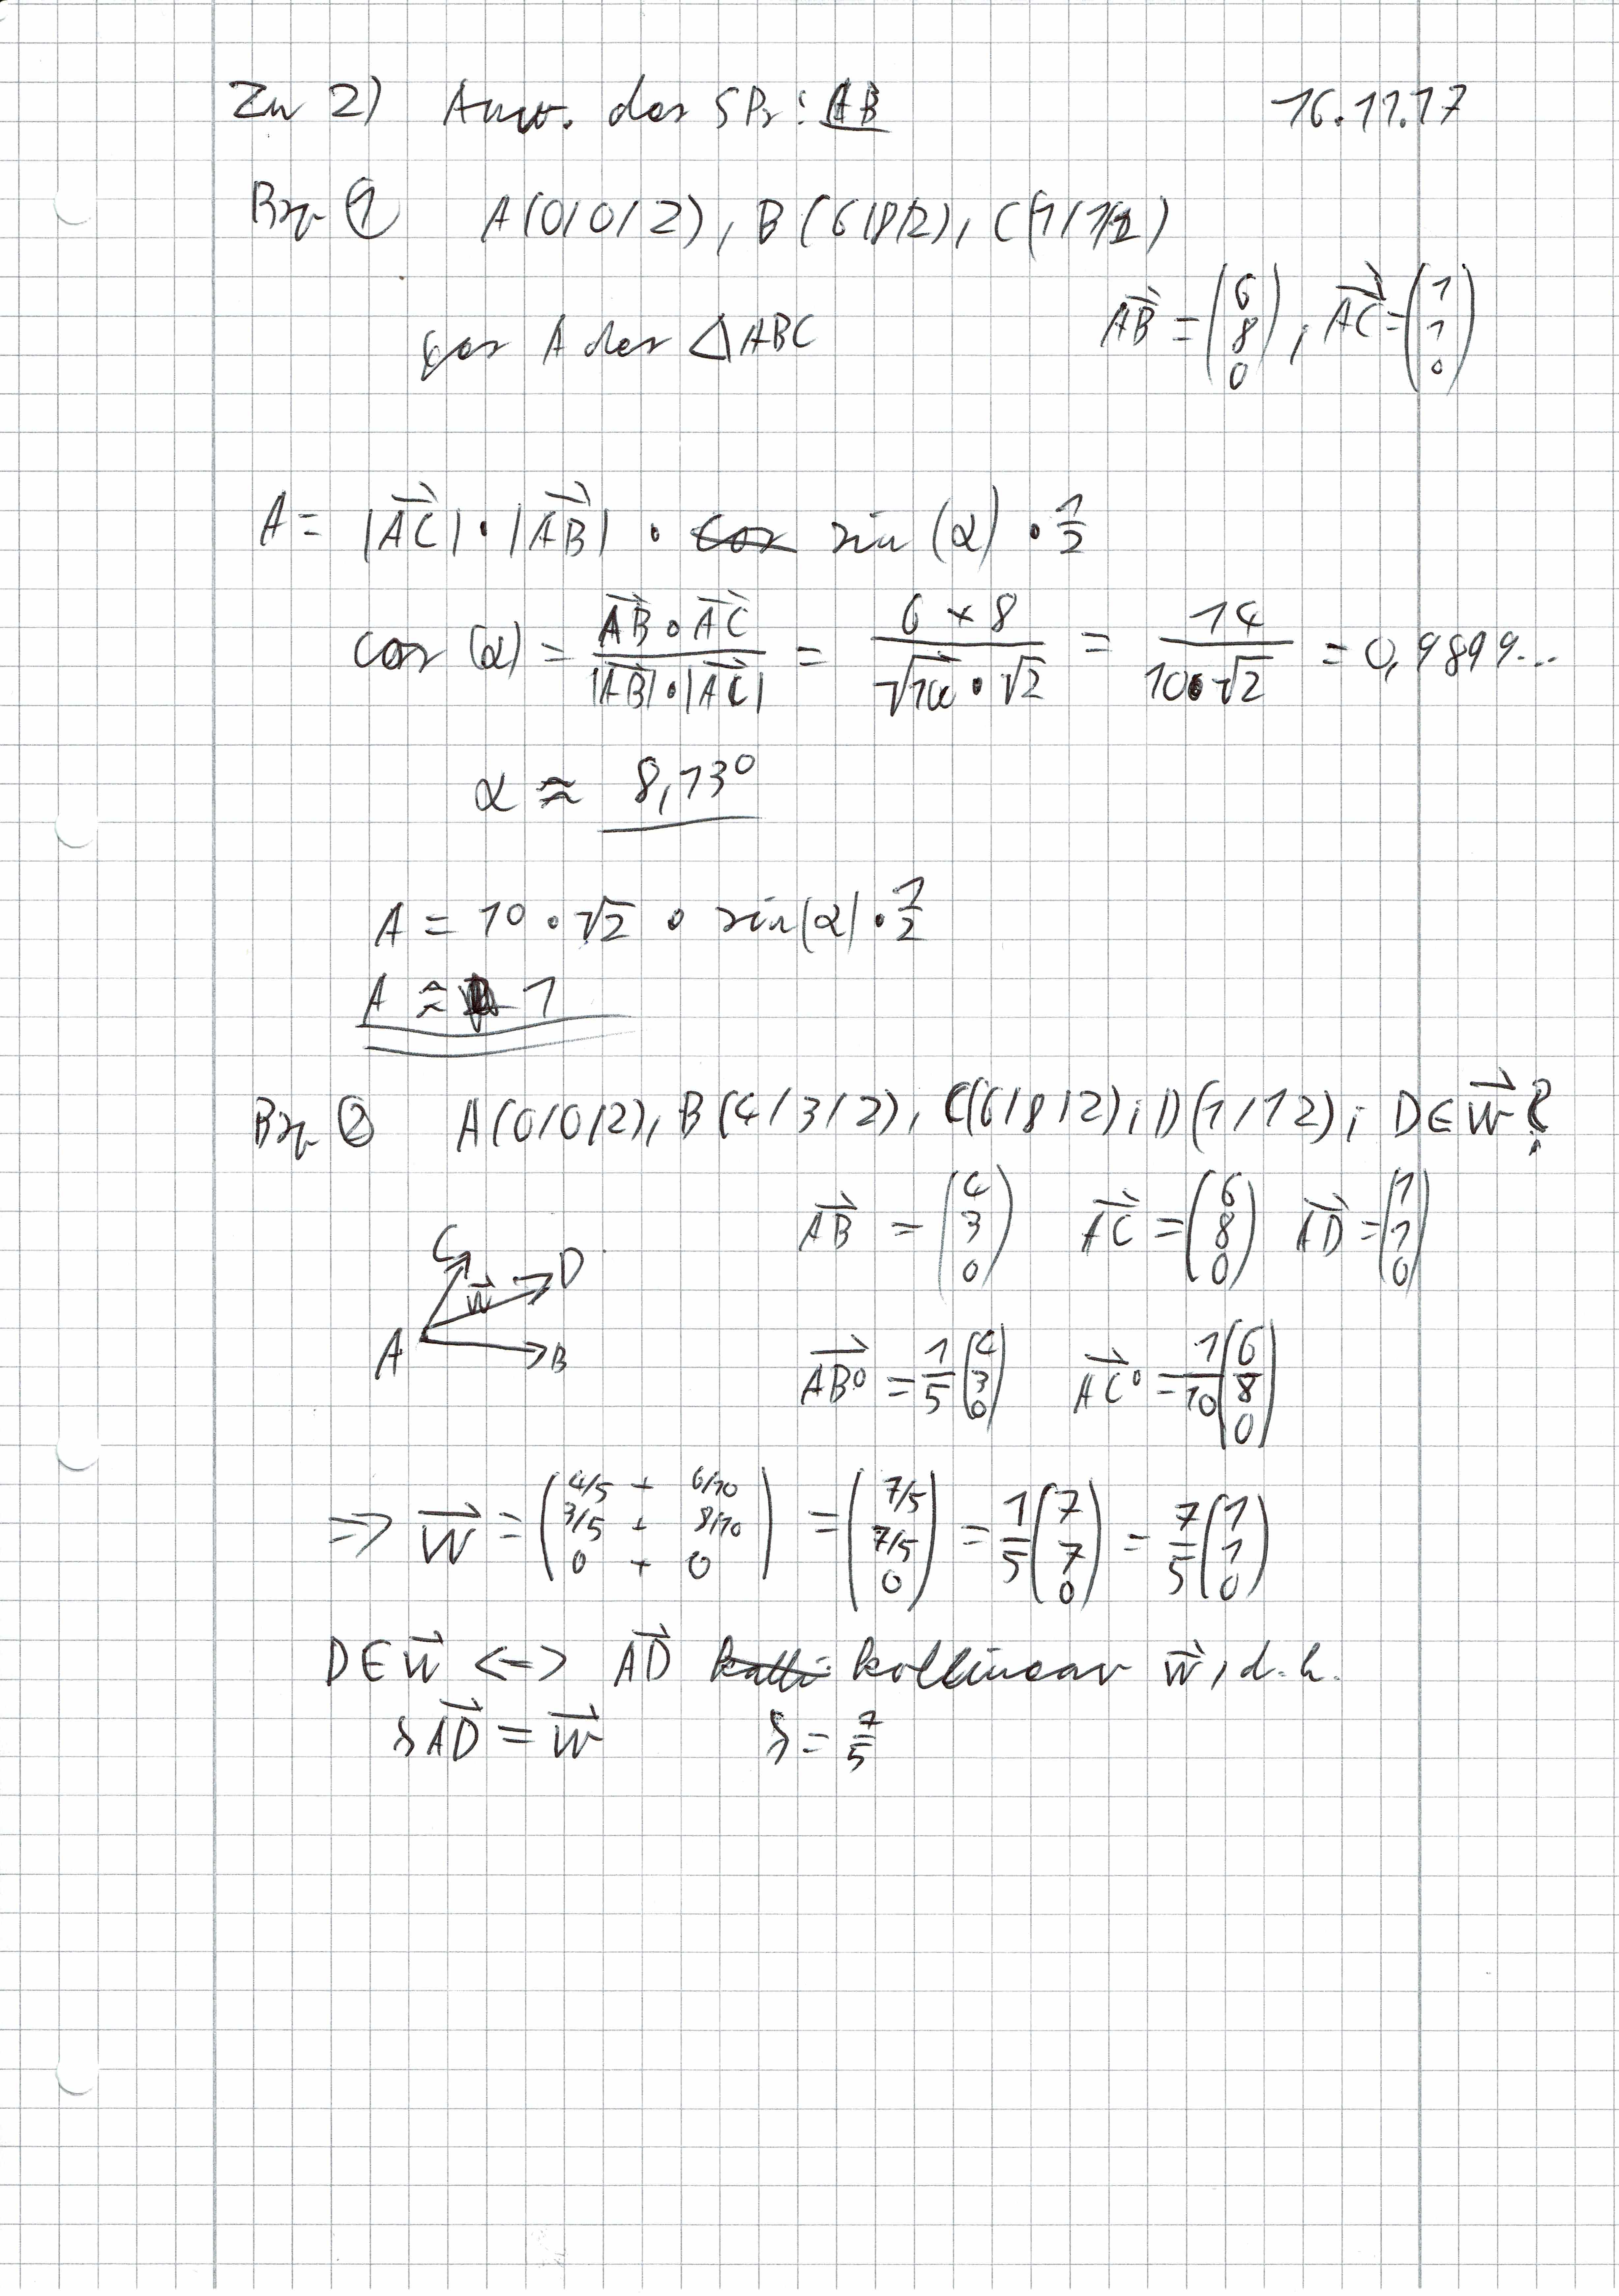 Zu 2) Anw. des SPr: AB 16.11.17
Bsp ① A(0/0/2), B(6/8/2), C(1/1/2)
ges A des △ABC
AB⃗ = (6 8 0), AC⃗ = (1 1 0)
A = |AC⃗| · |AB⃗| · cos sin (α) · 1/2
cos (α) = AB⃗ ∘ AC⃗ / |AB⃗| · |AC⃗| = 6 + 8 / √10 · √2 = 14 / 10 · √2 = 0,9899...
α ≈ 8,13°
A = 10 · √2 · sin(α) · 1/2
A ≈ 1
Bsp ② A(0/0/2), B(4/3/2), C(6/8/2); D(1/12); D∈w⃗?
AB⃗ = (4 3 0) AC⃗ = (6 8 0) AD⃗ = (1 1 0)
C
w⃗ D
A B
AB⃗° = 1/5 (4 3 0) AC⃗° = 1/10 (6 8 0)
=> w⃗ = (4/5 + 6/10 3/5 + 8/10 0 + 0) = (7/5 7/5 0) = 1/5 (7 7 0) = 7/5 (1 1 0)
D∈w⃗ <=> AD⃗ kolli kollinear w⃗, d.h.
s AD⃗ = w⃗ s = 7/5